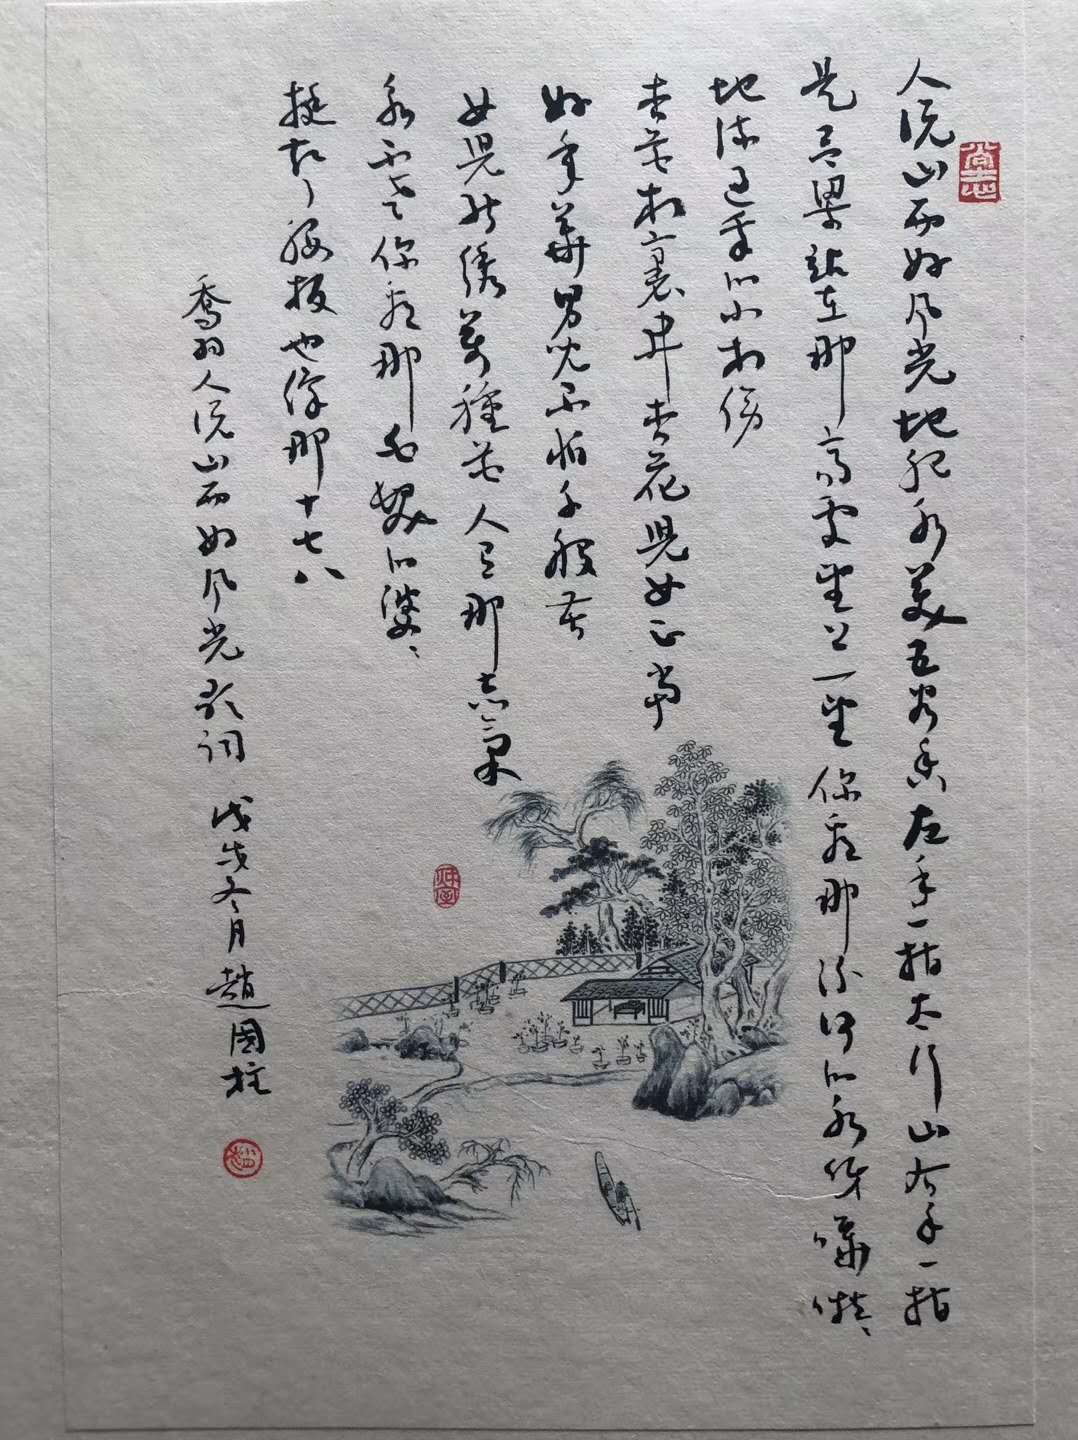 人说山西好风光地肥水美五谷香左手一指太行山右手一指
是吕梁站在那高处望上一望你看那汾河的水呀嘩啦、
地流过我的小村傍
杏花村裏开杏花兒女正当
好年華男児不怕千般苦
女兒能绣萬種花人有那志氣
永不老你看那白髮的婆、
挺起了腰板也像那十七八
喬羽人说山西好风光歌词 戊戌冬月趙國柱